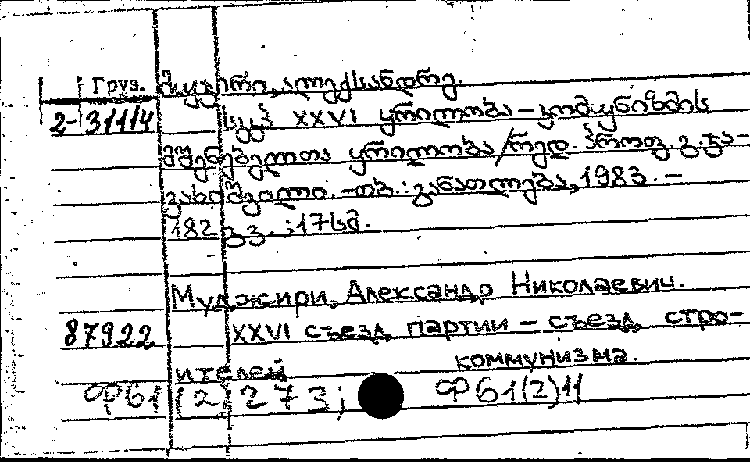 Груз. მუჯირი, ალექსანდრე.
2-311/4 სკკპ XXVI ყრილობა – კომუნიზმის
მშენებელთა ყრილობა /რედ. პროფ. გ. ჯა-
ვახიშვილი. – თბ.: განათლება, 1983. –
182 გვ. ; 17 სმ.
Муджири, Александр Николаевич.
87922 XXVI съезд партии – съезд стро-
ителей коммунизма.
Ф61(2)273; Ф61(2)11